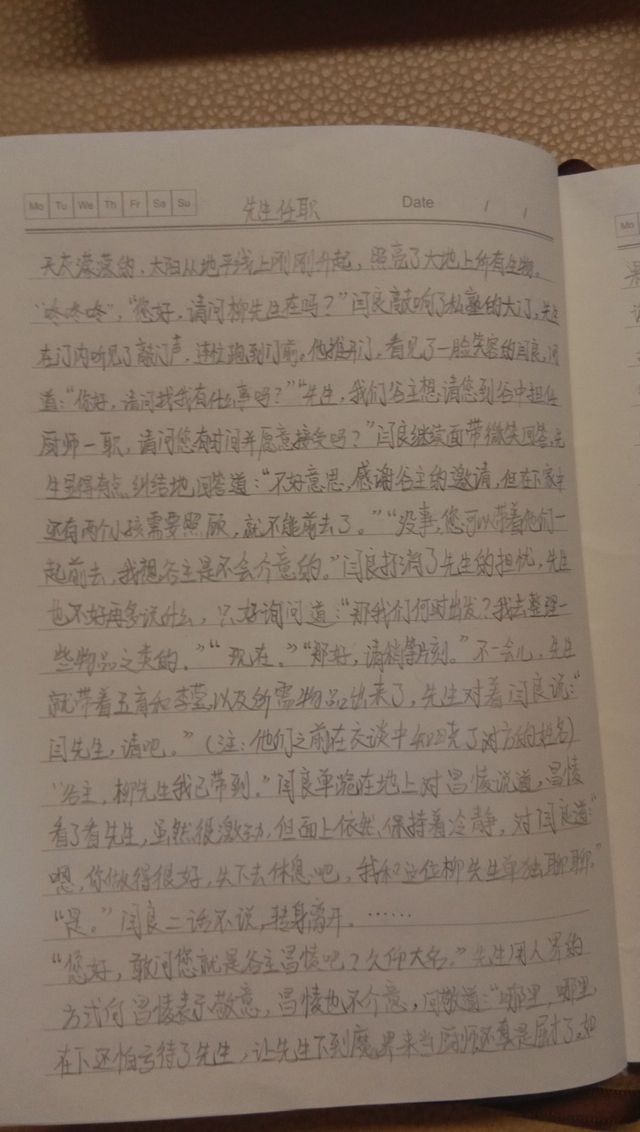 Mo Tu We Th Fr Sa Su 先生任职 Date / /
天灰濛濛的，太阳从地平线上刚刚升起，照亮了大地上所有生物。
“咚咚咚”，“您好，请问柳先生在吗？”闫良敲响了私塾的大门，先生
在门内听见了敲门声，连忙跑到门前。他推开门，看见了一脸笑容的闫良，问
道：“你好，请问找我有什么事吗？”“先生，我们谷主想请您到谷中担任
厨师一职，请问您有时间并愿意接受吗？”闫良继续面带微笑回答，先
生显得有点纠结地回答道：“不好意思，感谢谷主的邀请，但在下家中
还有两个小孩需要照顾，就不能前去了。”“没事，您可以带着他们一
起前去，我想谷主是不会介意的。”闫良打消了先生的担忧，先生
也不好再多说什么，只好询问道：“那我们何时出发？我去整理一
些物品之类的。”“现在。”“那好，请稍等片刻。”不一会儿，先生
就带着五育和李莹以及所需物品出来了，先生对着闫良说：“
闫先生，请吧。”（注：他们之前在交谈中知晓了对方的姓名）
“谷主，柳先生我已带到。”闫良单跪在地上对昌倰说道，昌倰
看了看先生，虽然很激动，但面上依然保持着冷静，对闫良道：“
嗯，你做得很好，先下去休息吧，我和这位柳先生单独聊聊。”
“是。”闫良二话不说，转身离开。……
“您好，敢问您就是谷主昌倰吧？久仰大名。”先生用人界的
方式向昌倰表示敬意，昌倰也不介意，回敬道：“哪里，哪里
在下还怕亏待了先生，让先生下到魔界来当厨师还真是屈才了。如
Mo